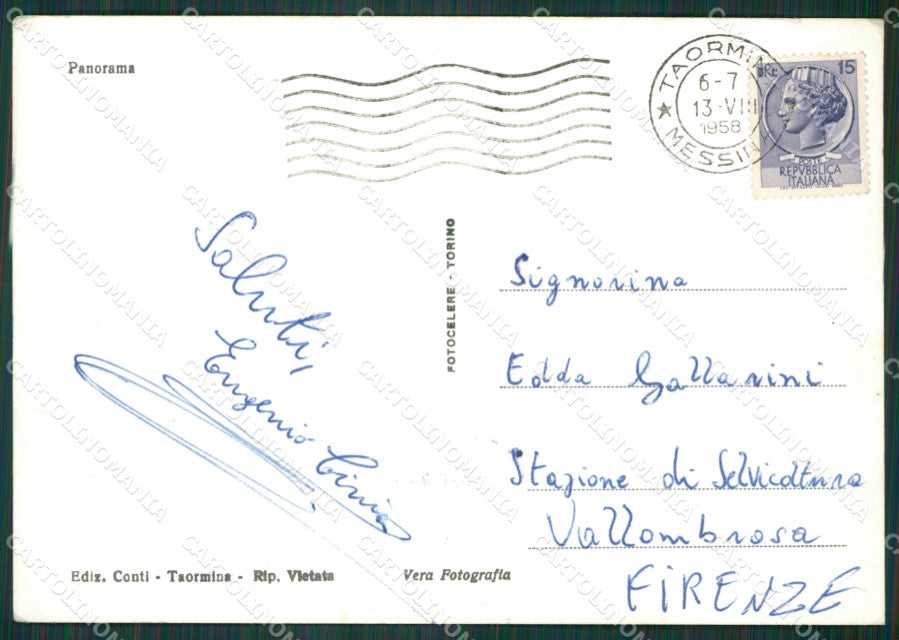 Panorama
TAORMINA
6-7
13-VIII
1958
★ MESSINA
LIRE 15
POSTE
REPVBBLICA
ITALIANA
Saluti,
Eugenio
FOTOCELERE - TORINO
Signorina
Edda Gallarini
Stazione di Selvicoltura
Vallombrosa
FIRENZE
Ediz. Conti - Taormina - Rip. Vietata
Vera Fotografia
CARTOLINOMANIA